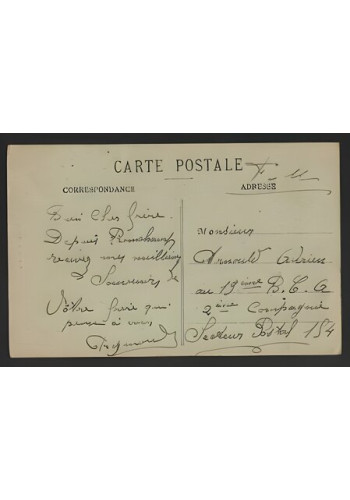 CARTE POSTALE
F. M
CORRESPONDANCE
ADRESSE
Bien cher frère.
Depuis Ronchamp
recevez mes meilleurs
Souvenirs de
Vôtre frère qui
pense à vous
Monsieur
Arnould Adrien
au 19ème B. C. A
2ème Compagnie
Secteur Postal 154